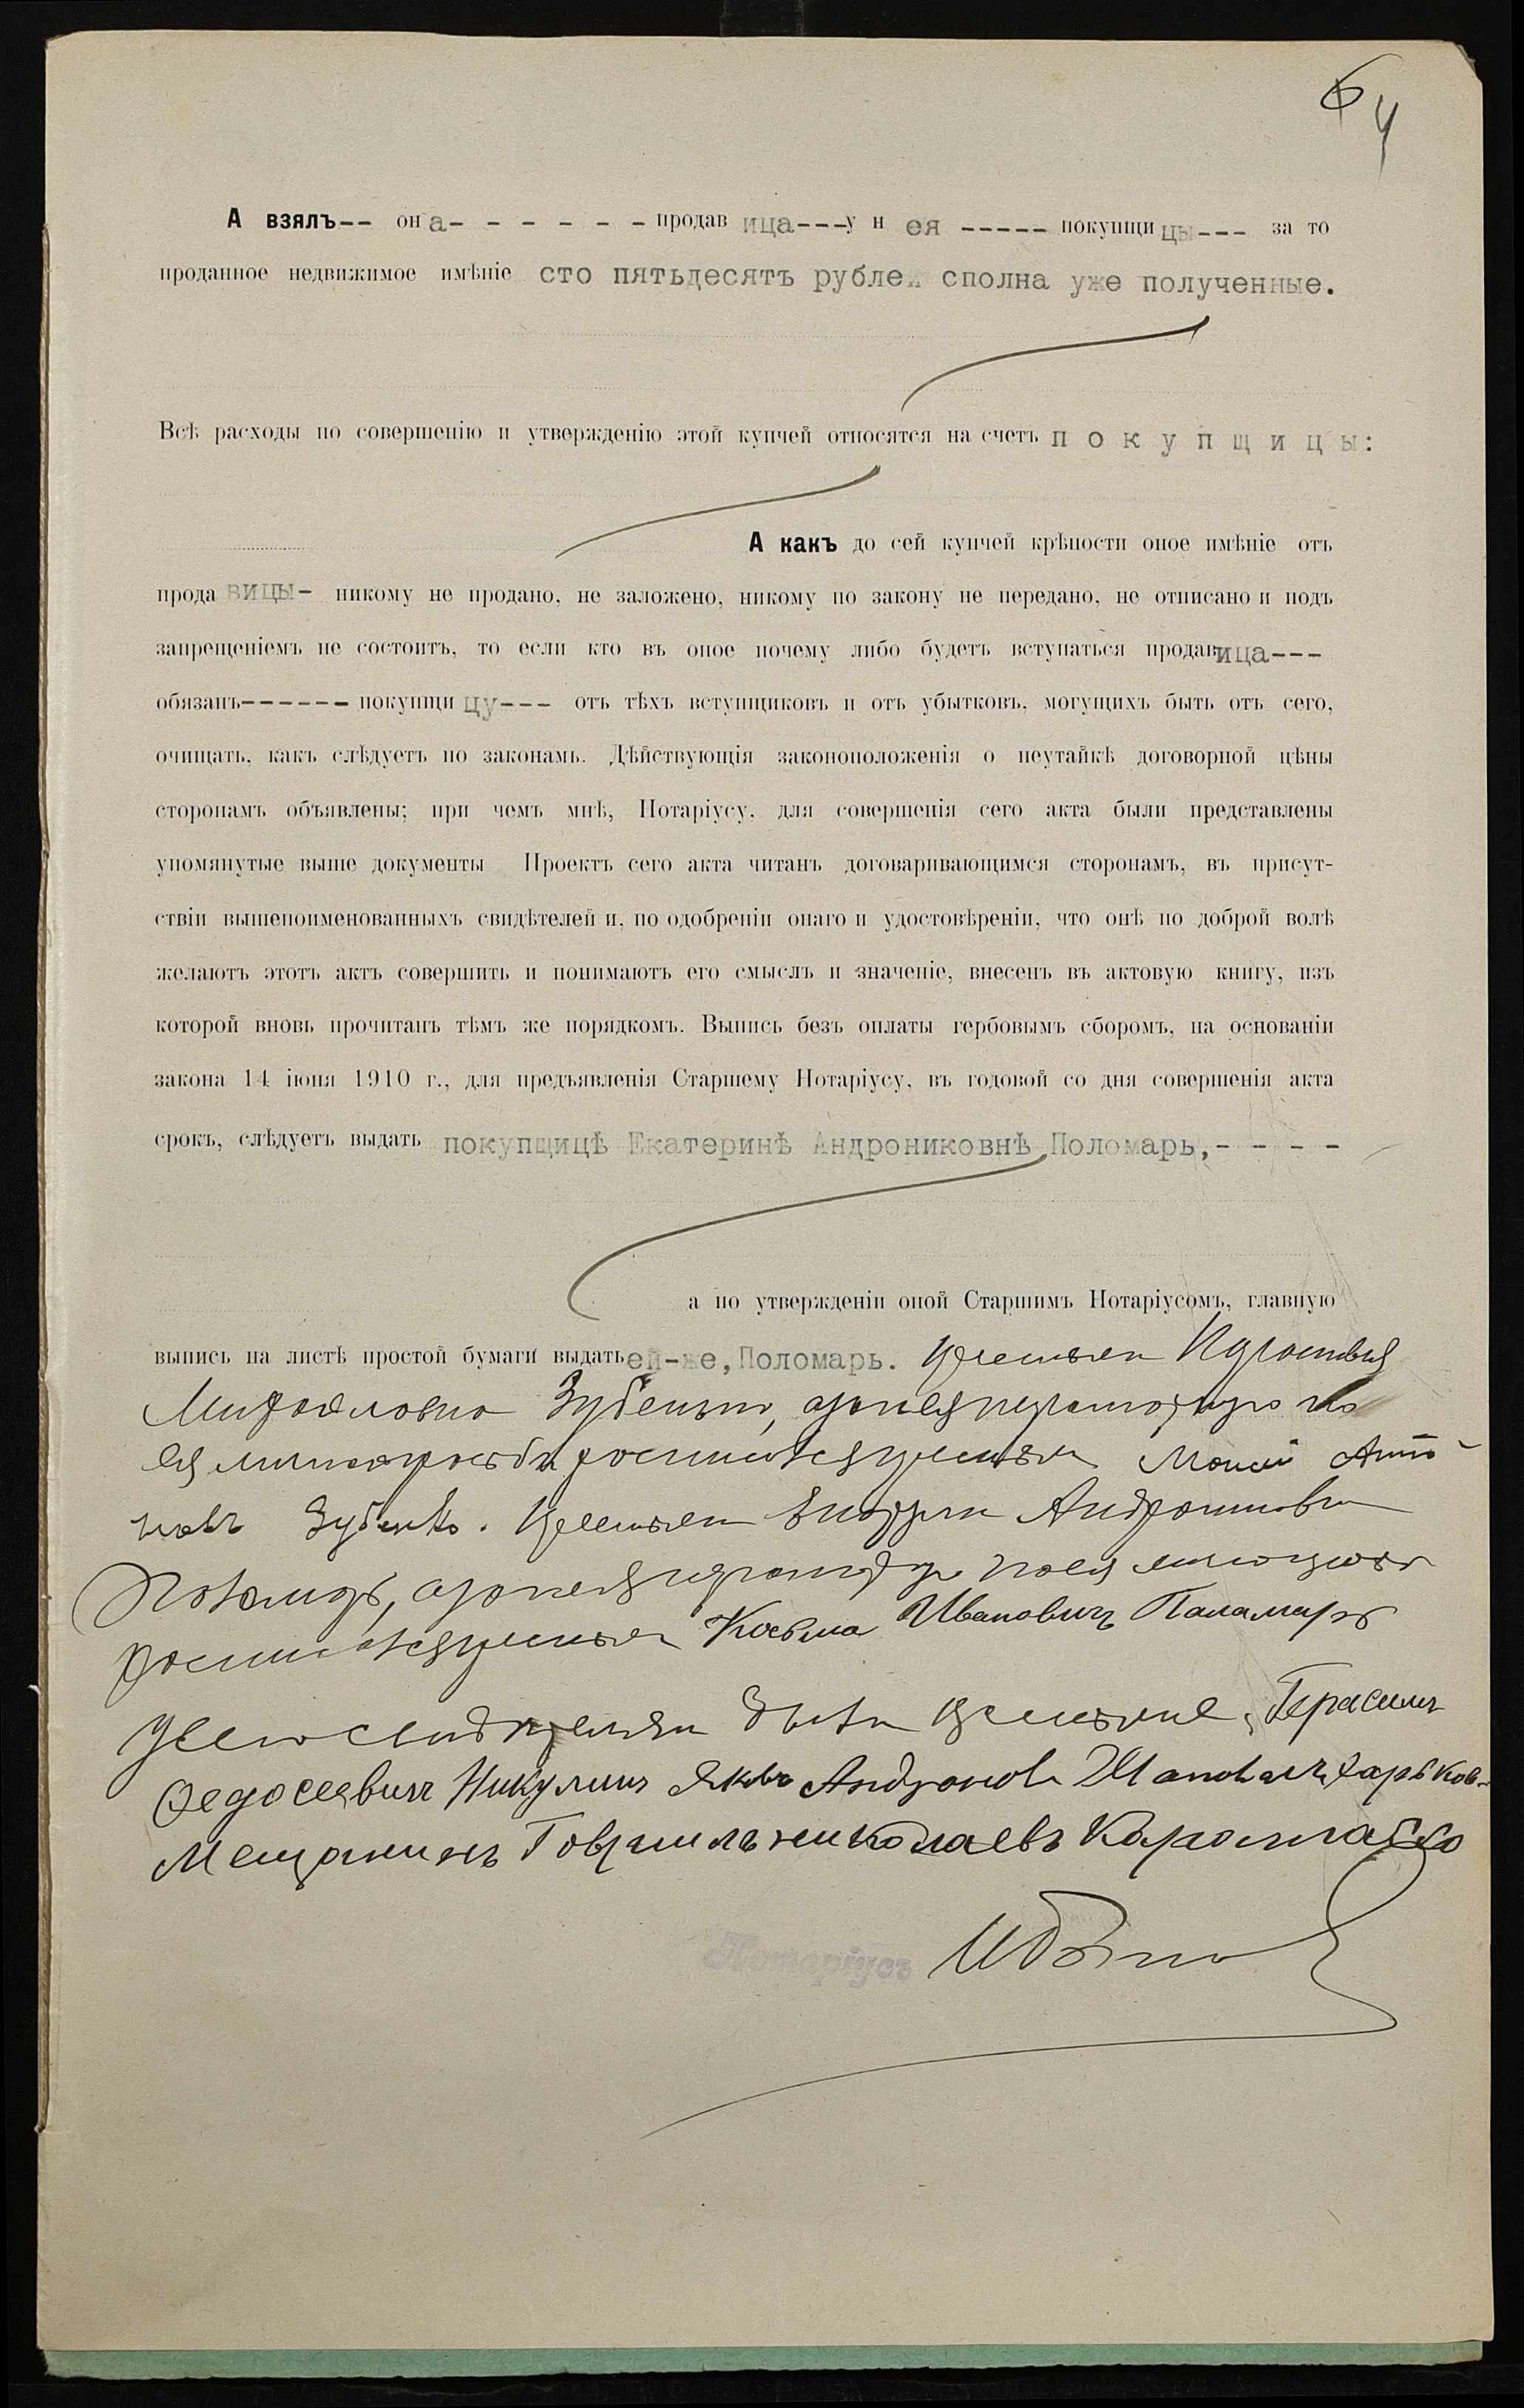 64
А взялъ-- она- - - - - - - продавица---у нея ----- покупщицы--- за то
проданное недвижимое имѣніе сто пятьдесятъ рублей сполна уже полученные.
Всѣ расходы по совершенію и утвержденію этой купчей относятся на счетъ покупщицы:
А какъ до сей купчей крѣпости оное имѣніе отъ
продавицы- никому не продано, не заложено, никому по закону не передано, не отписано и подъ
запрещеніемъ не состоитъ, то если кто въ оное почему либо будетъ вступаться продавица---
обязанъ------ покупщицу--- отъ тѣхъ вступщиковъ и отъ убытковъ, могущихъ быть отъ сего,
очищать, какъ слѣдуетъ по законамъ. Дѣйствующія законоположенія о неутайкѣ договорной цѣны
сторонамъ объявлены; при чемъ мнѣ, Нотаріусу, для совершенія сего акта были представлены
упомянутые выше документы Проектъ сего акта читанъ договаривающимся сторонамъ, въ присут-
ствіи вышепоименованныхъ свидѣтелей и, по одобреніи онаго и удостовѣреніи, что онѣ по доброй волѣ
желаютъ этотъ актъ совершить и понимаютъ его смыслъ и значеніе, внесенъ въ актовую книгу, изъ
которой вновь прочитанъ тѣмъ же порядкомъ. Выпись безъ оплаты гербовымъ сборомъ, на основаніи
закона 14 іюня 1910 г., для предъявленія Старшему Нотаріусу, въ годовой со дня совершенія акта
срокъ, слѣдуетъ выдать покупщицѣ Екатеринѣ Андрониковнѣ Поломарь,- - - -
а по утвержденіи оной Старшимъ Нотаріусомъ, главную
выпись на листѣ простой бумаги выдать ей-же, Поломарь.
Зубенко, а за нея неграмотную по
ея личной просьбѣ росписался крестьянинъ Моисей Анто-
новъ Зубенко. Андроникова
Поломарь, а за нея неграмотную по ея личной просьбѣ
росписался крестьянинъ Косьма Ивановичъ Паламарь
свидѣтелями были крестьяне: Герасимъ
Федосеевичъ Никулинъ Яковъ Андроновъ Харьков-
Мещанинъ Гавріилъ николаевъ
Нотаріусъ